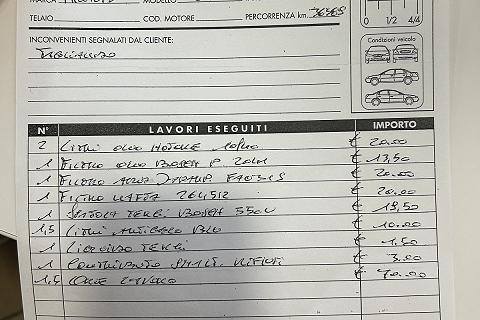 MARCA MODELLO
TELAIO COD. MOTORE PERCORRENZA km.
0 1/2 4/4
INCONVENIENTI SEGNALATI DAL CLIENTE:
Condizioni veicolo
TAGLIANDO
N° LAVORI ESEGUITI IMPORTO
2 LITRI OLIO MOTORE € 20.00
1 FILTRO OLIO BOSCH P € 13,50
1 FILTRO ARIA € 20.00
1 FILTRO NAFTA € 20.00
1 SPAZOLE TERGI BOSCH 550U € 18,50
1,5 LITRI ANTIGELO BLU € 10.00
1 LIQUIDO TERGI € 1.50
1 CONTRIBUTO SMALT. RIFIUTI € 3.00
1,5 ORE LAVORO € 70.00